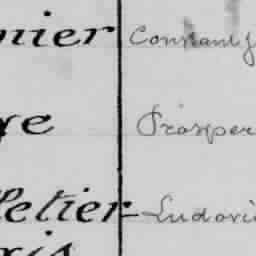 nier Constant J
re Prosper
lletier - Ludovic
ris